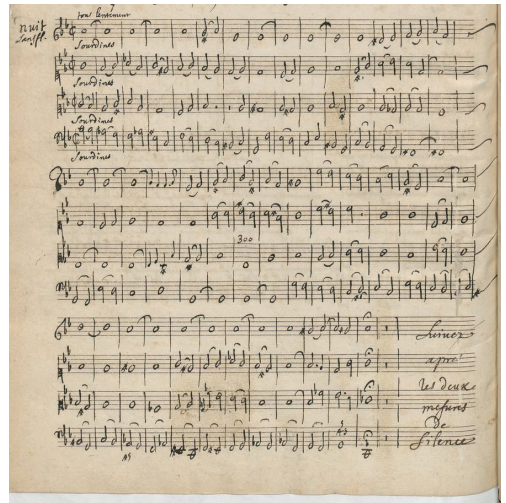 nuit
tous lentement
sans fl.
Sourdines
Sourdines
Sourdines
Sourdines
300
Suivez
apres
les deux
mesures
de
Silence